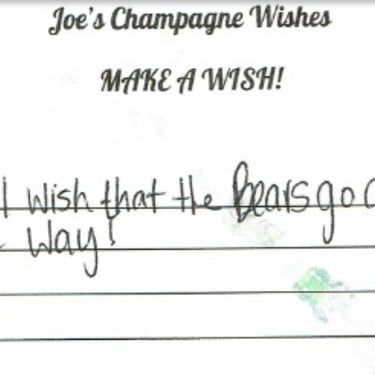 Joe's Champagne Wishes
MAKE A WISH!
I wish that the Bears go
way!